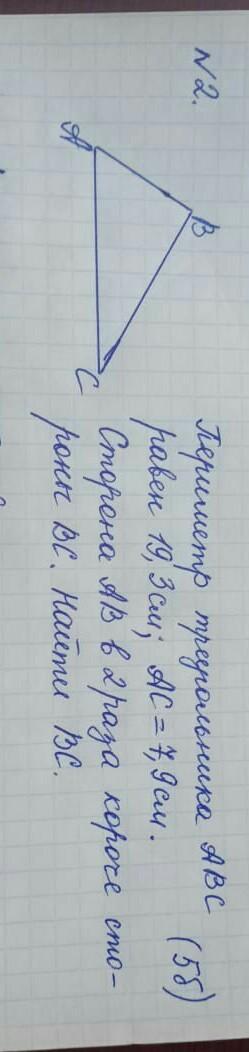 №2.
B
A
C
Периметр треугольника ABC (5б)
равен 19,3см; AC = 7,9см.
Сторона AB в 2 раза короче сто-
роны BC. Найти BC.